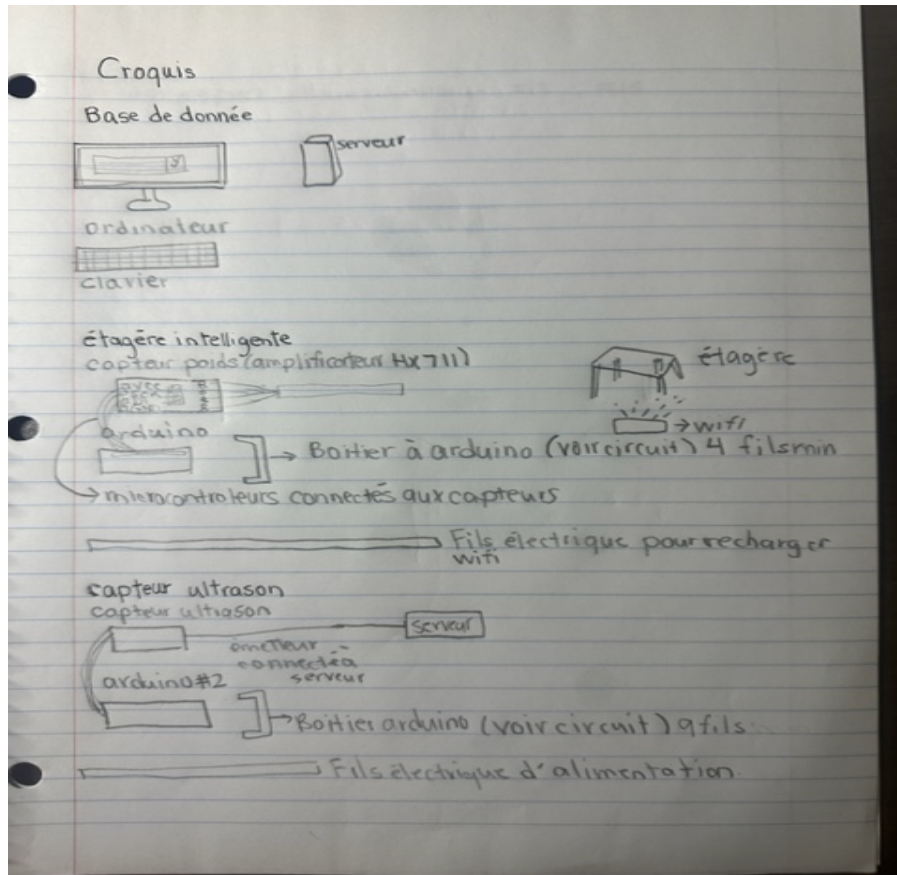 Croquis
Base de donnée
serveur
ordinateur
clavier
étagère intelligente
capteur poids (amplificateur HX711)
étagère
→ wifi
arduino
→ Boitier à arduino (voir circuit) 4 fils min
→ microcontroleurs connectés aux capteurs
Fils électrique pour recharger
wifi
capteur ultrason
capteur ultrason
serveur
émetteur
connecté à
serveur
arduino #2
→ Boitier arduino (voir circuit) 9 fils
Fils électrique d'alimentation.